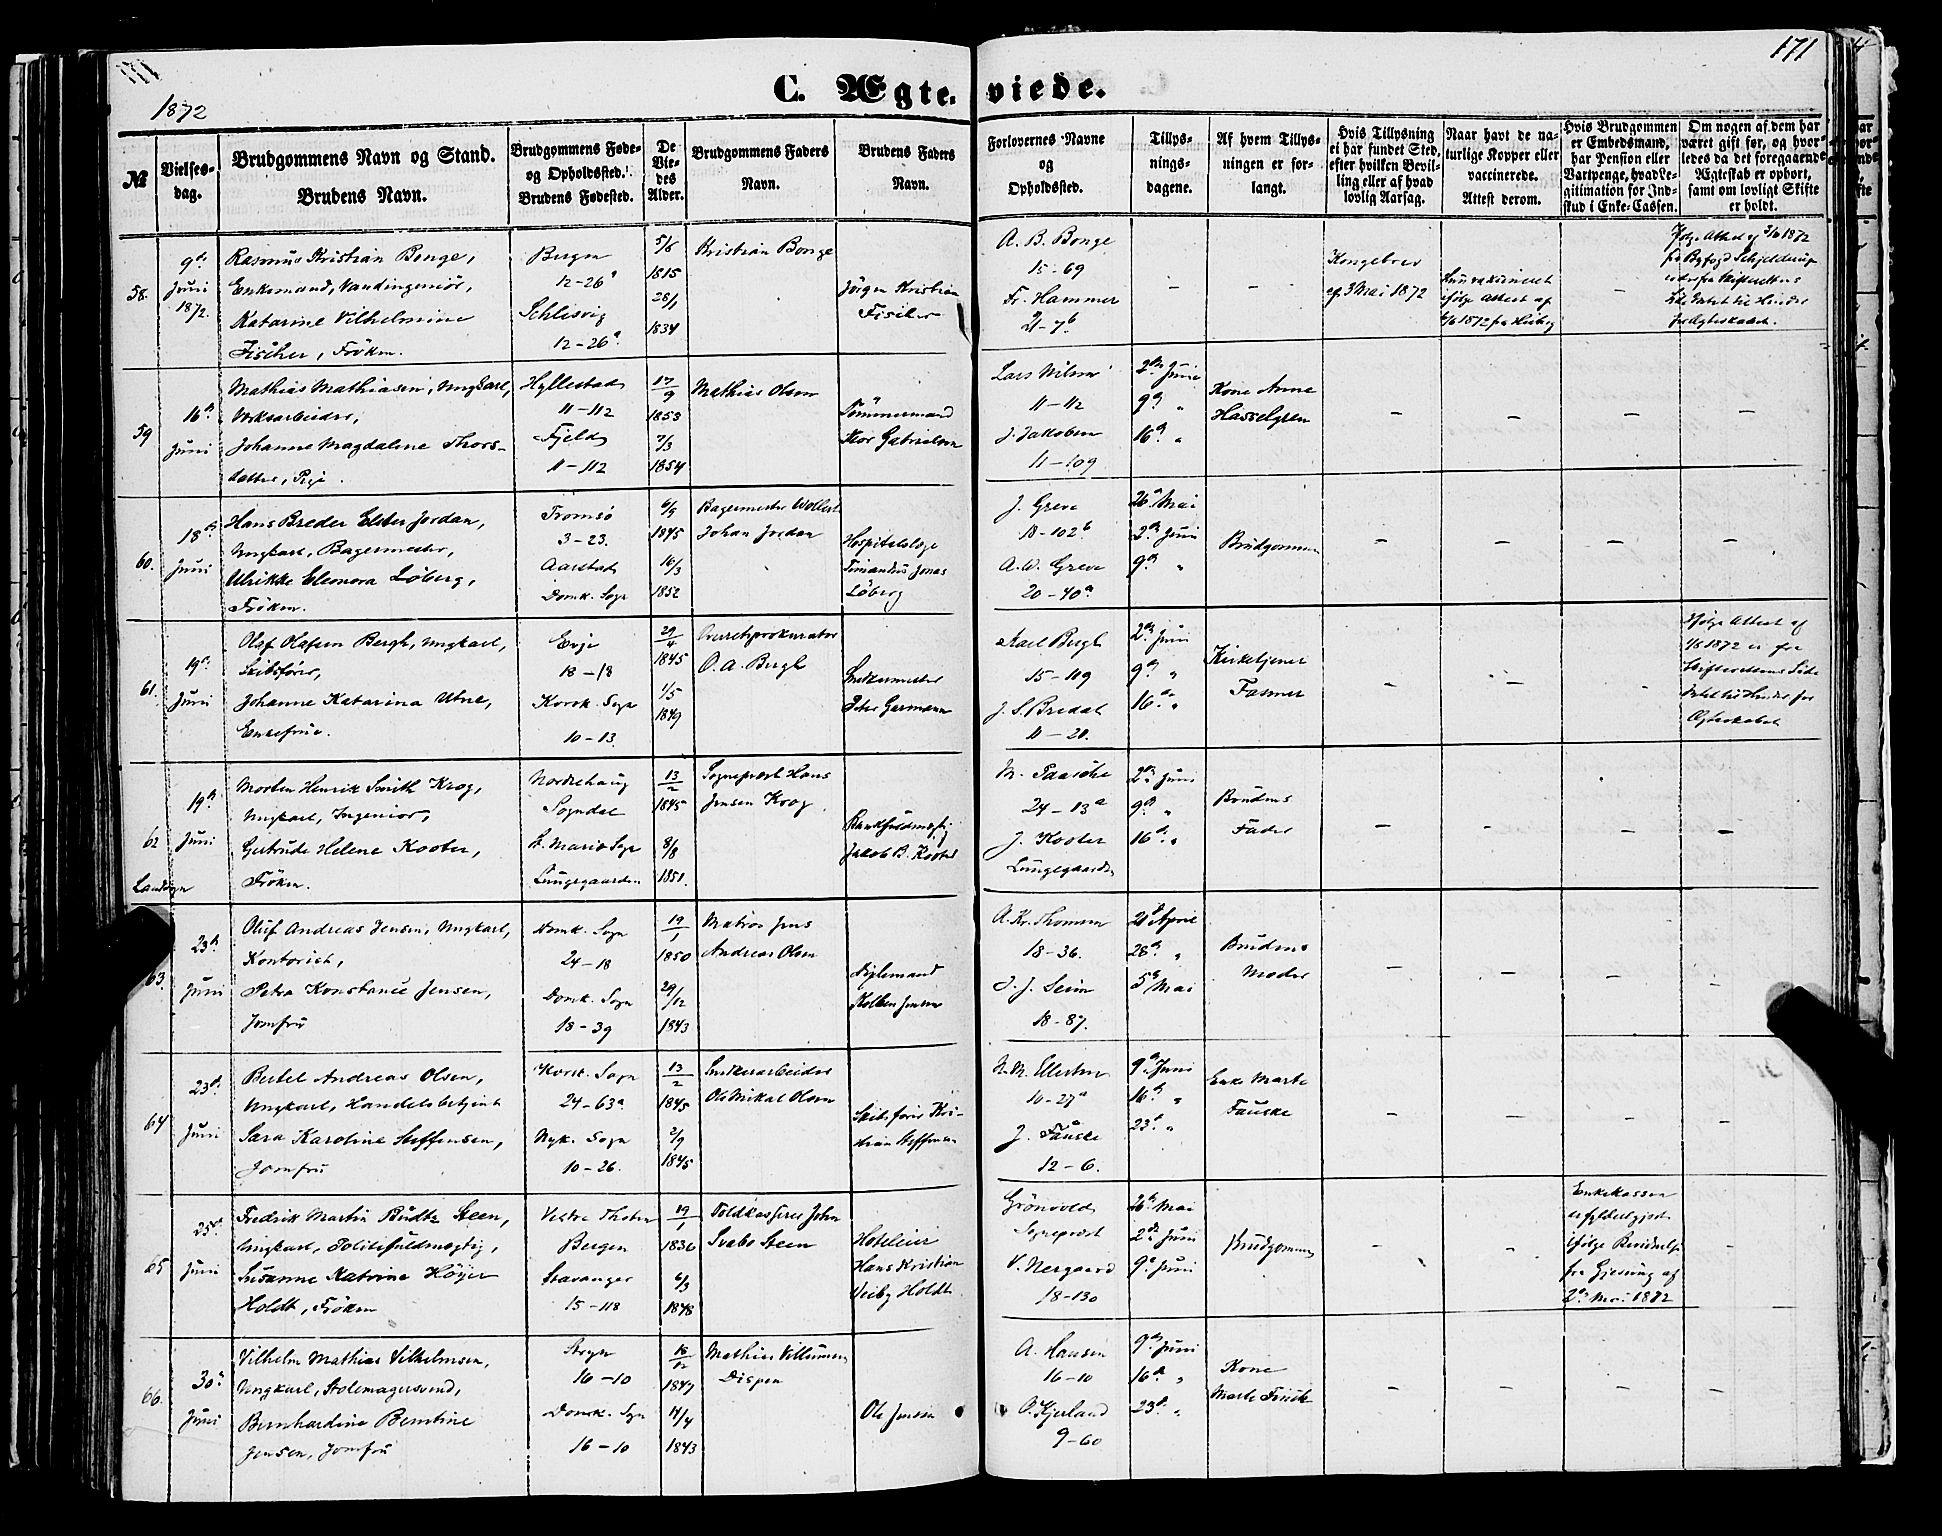 171
C. Ægteviede.
1872
№
Vielsesdag.
Brudgommens Navn og Stand.
Brudens Navn.
Brudgommens Føde-
og Opholdssted.
Brudens Fødested.
De
Vie-
des
Alder.
Brudgommens Faders
Navn.
Brudens Faders
Navn.
Forlovernes Navne
og
Opholdssted.
Tillys-
nings-
dagene.
Af hvem Tillys-
ningen er for-
langt.
Hvis Tillysning
ei har fundet Sted,
efter hvilken Bevil-
ling eller af hvad
lovlig Aarsag.
Naar havt de na-
turlige Kopper eller
vaccinerede.
Attest derom.
Hvis Brudgommen
er Embedsmand,
har Pension eller
Vartpenge, hvad Le-
gitimation for Ind-
skud i Enke-Cassen.
Om nogen af dem har
været gift før, og hvor-
ledes da det foregaaende
Ægteskab er ophørt,
samt om lovligt Skifte
er holdt.
58.
9de
Juni
1872.
Rasmus Kristian Bonge,
Enkemand, Vandingeniør,
Katarine Vilhelmine
Fischer, Frøken.
Bergen
12-26a
Schlesvig
12-26a
5/6
1815
28/1
1834
Kristian Bonge
Jörgen Kristian
Fischer
A. B. Bonge
15-69
Fr. Hammer
21-7b
-
-
Kongebrev
af 3 Mai 1872
-
59
16de
Juni
Mathias Mathiasen, Ungkarl,
Værksarbeider,
Johanne Magdalene Thors-
datter, Pige.
Hyllestad
11-112
Fjeld
11-112
17/9
1853
7/3
1854
Mathias Olsen
Tømmermand
Thor Gabrielsen
Lars Nilsen
11-112
J. Jakobsen
11-109
2den Juni
9de "
16de "
Kone Anne
Hasselgren
-
-
-
-
60.
18de
Juni
Hans Breder Elster Jordan,
Ungkarl, Bagermester,
Ulrikke Eleonora Løberg,
Frøken.
Tromsö
3-23.
Aarstad
Domk. Sogn
6/5
1845
16/3
1852
Bagermester Wollert
Johan Jordan
Hospitalslæge
Timandus Jonas
Löberg
J. Greve
18-102b
A. W. Greve
20-40a
26de Mai
2den Juni
9de "
Brudgommen
-
-
-
-
61.
19de
Juni
Olaf Olafsen Bergh, Ungkarl,
Skibsfører,
Johanne Katarina Utne,
Enkefrue.
Evje
18-18
Korsk. Sogn
10-13.
29/4
1845
1/5
1849
Overretsprokurator
O. A. Bergh
Snedkermester
Peter Garmann
Karl Bergh
15-119
J. S. Bredal
11-21.
2den Juni
9de "
16de "
Kirketjener
Fasmer
-
-
-
Ifølge Attest af
1/6 1872 er fra
Skifterettens Side
Intet til Hinder for
Ægteskabet
62
Landsogn
19de
Juni
Morten Henrik Smith Krog,
Ungkarl, Ingeniør,
Gertrude Helene Kooter,
Frøken.
Norderhaug
Sogndal
St. Maria Sogn
Lungegaarden
13/2
1845
8/8
1851.
Sogneprest Hans
Jensen Krog
Bankfuldmægtig
Jakob B. Kooter
M. Paasche
24-13a
J. Kooter
Lungegaarden
2den Juni
9de "
16de "
Brudens
Fader
-
-
-
-
63.
23de
Juni
Oluf Andreas Jensen, Ungkarl,
Kontorist,
Petra Konstance Jensen,
Jomfru
Domk. Sogn
24-18
Domk. Sogn
18-39
19/1
1850
29/12
1843
Matros Jens
Andreas Olsen
Kolben Jensen
A. Kr. Thomsen
18-36.
J. J. Seim
18-87.
21de April
28de "
5te Mai
Brudens
Moder
-
-
-
-
64
23de
Juni
Bertel Andreas Olsen,
Ungkarl, Handelsbetjent
Sara Karoline Steffensen,
Jomfru
Korsk. Sogn
24-63a
Nyk. Sogn
10-26.
13/2
1845
2/9
1845
Snedkerarbeider
Ole Mikal Olsen
Skibsfører Kri-
stian Steffensen
10-27a
J. Fauske
12-6.
9de Juni
16de "
23de "
Enke Marte
Fauske
-
-
-
-
65
25de
Juni
Fredrik Martin Budtz Steen,
Ungkarl, Politifuldmægtig,
Susanne Katrine Höyer
Holdt, Frøken
Vestre Thoten
Bergen
Stavanger
15-118
19/1
1836
6/3
1848
Toldkasserer John
Svabo Steen
Hoteleier
Hans Kristian
Veiby Holdt
Grönvold
Sogneprest
V. Nergaard
18-130
26de Mai
2den Juni
9de Juni
Brudgommen
-
-
Enkekassen
er fyldestgjort
ifølge Bevidnelse
fra Gjessing af
2den Mai 1872
-
66.
30te
Juni
Vilhelm Mathias Vilhelmsen,
Ungkarl, Stolemagersvend,
Bernhardine Berntine
Jensen, Jomfru
Stryn
16-10
Domk. Sogn
16-10
16/12
1847
14/4
1843
Mathias Villumsen
Dispen
Ole Jensen
A. Hansen
16-10
O. Kjerland
9-60
9de Juni
16de "
23de "
Kone
-
-
-
-